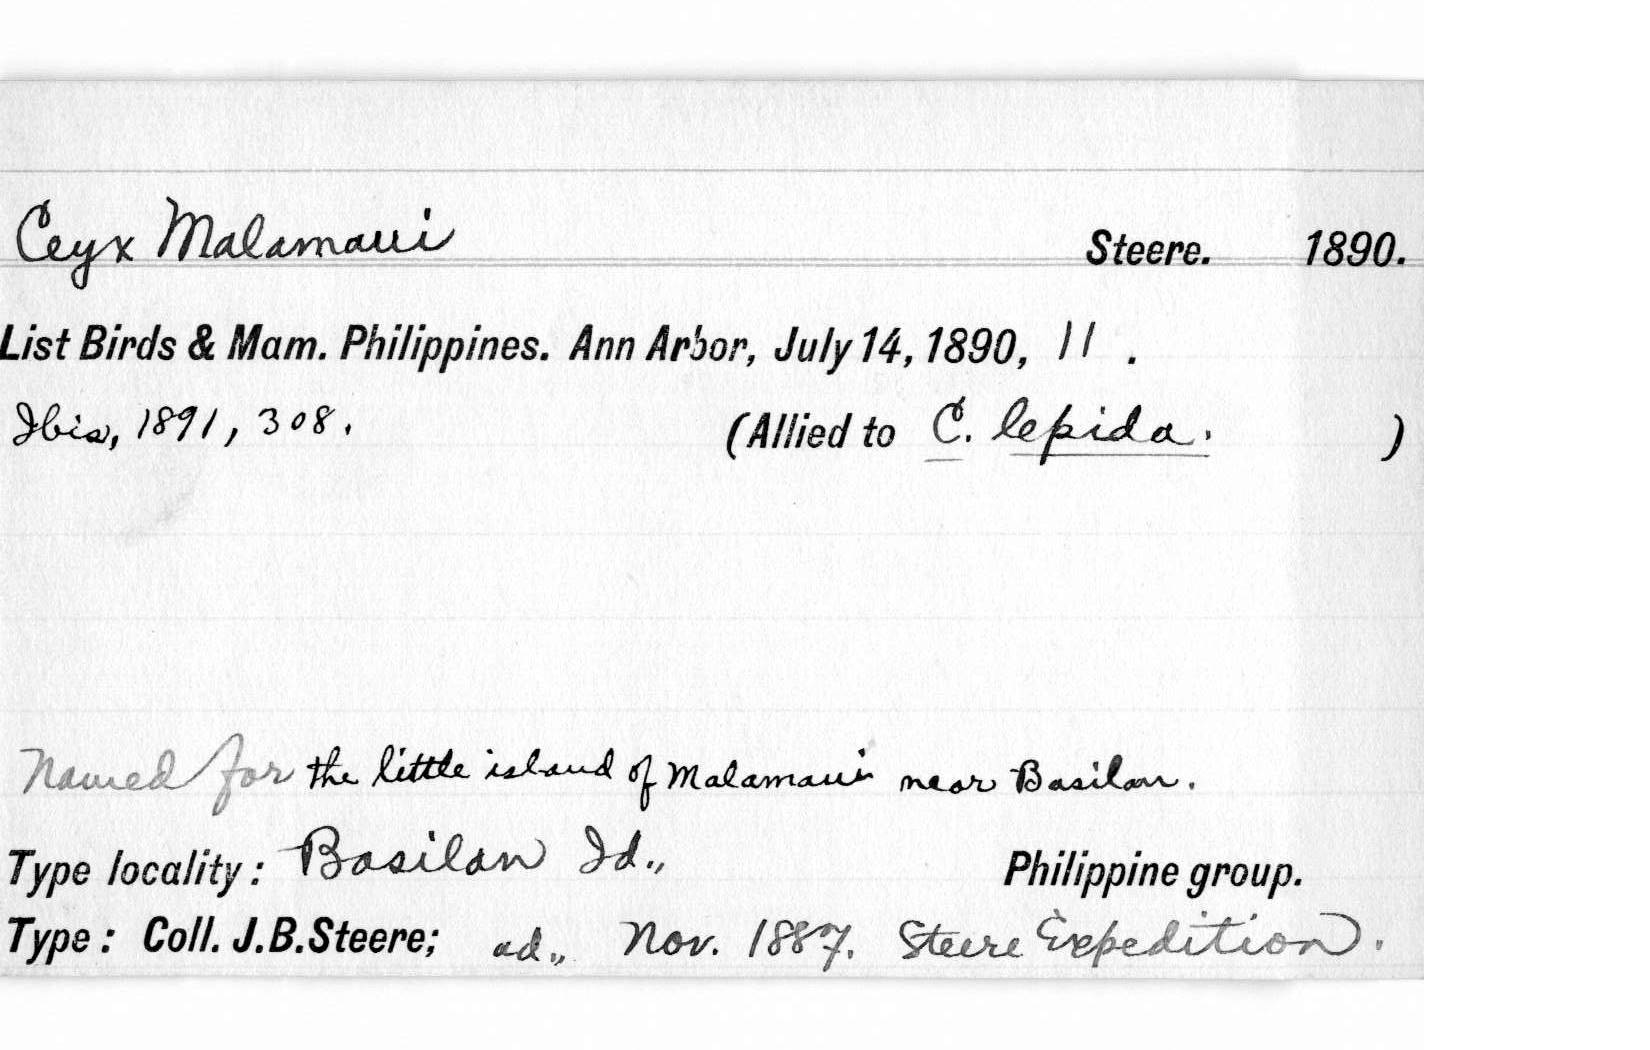 Ceyx Malamaui Steere. 1890.
List Birds & Mam. Philippines. Ann Arbor, July 14, 1890, 11 .
Ibis, 1891, 308. (Allied to C. lepida. )
Named for the little island of Malamaui near Basilan.
Type locality: Basilan Id., Philippine group.
Type: Coll. J.B.Steere; ad., Nov. 1887. Steere Expedition.